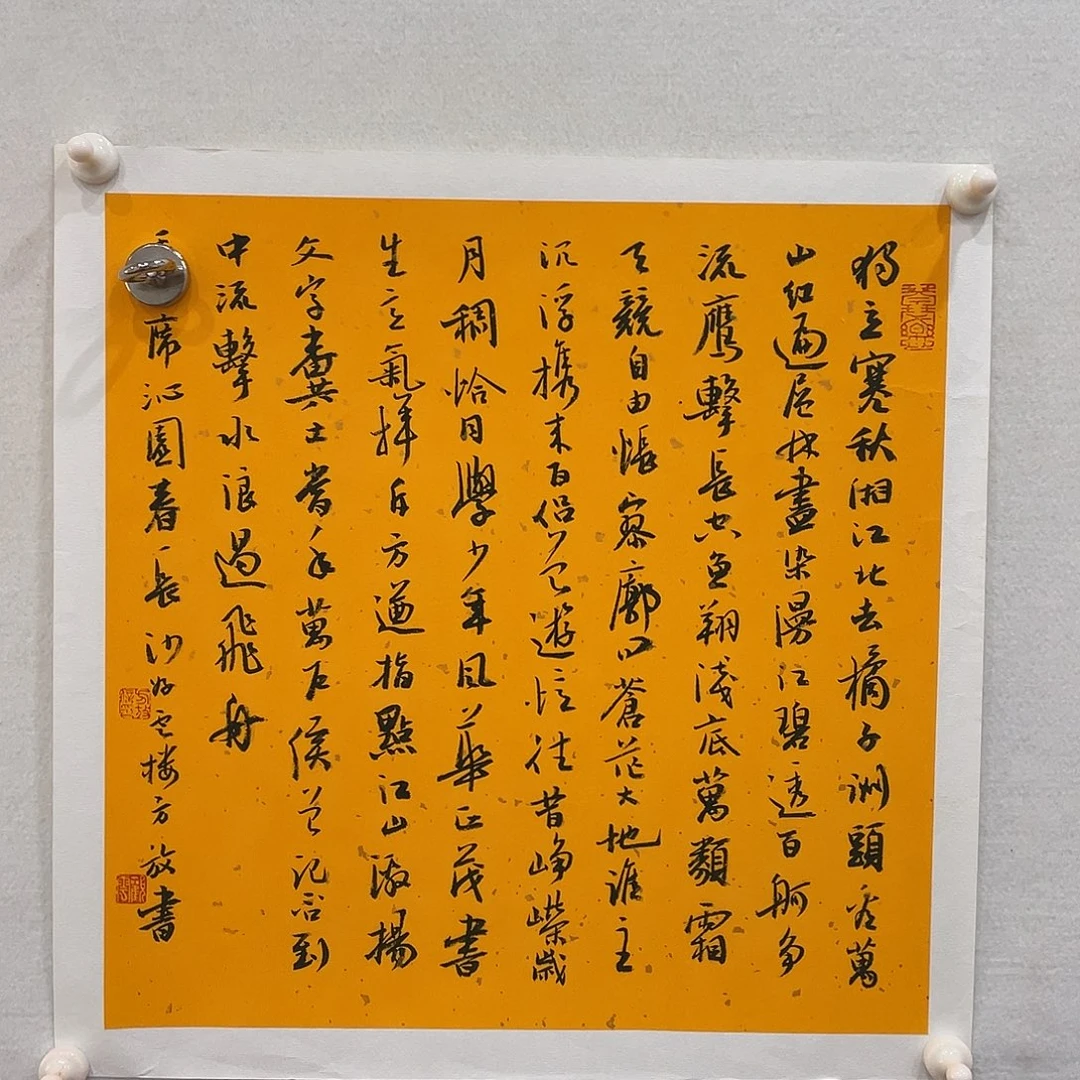 獨立寒秋湘江北去橘子洲頭看萬
山紅遍层林盡染漫江碧透百舸争
流鷹擊長空魚翔淺底萬類霜
天競自由悵寥廓問蒼茫大地誰主
沉浮携来百侣曾遊憶往昔崢嶸歲
月稠恰同學少年風華正茂書
生意氣揮斥方遒指點江山激揚
文字糞土當年萬户侯曾記否到
中流擊水浪遏飛舟
席沁園春長沙好雲楼方放書